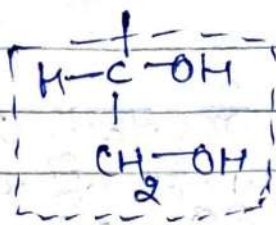 H-C-OH
CH2-OH